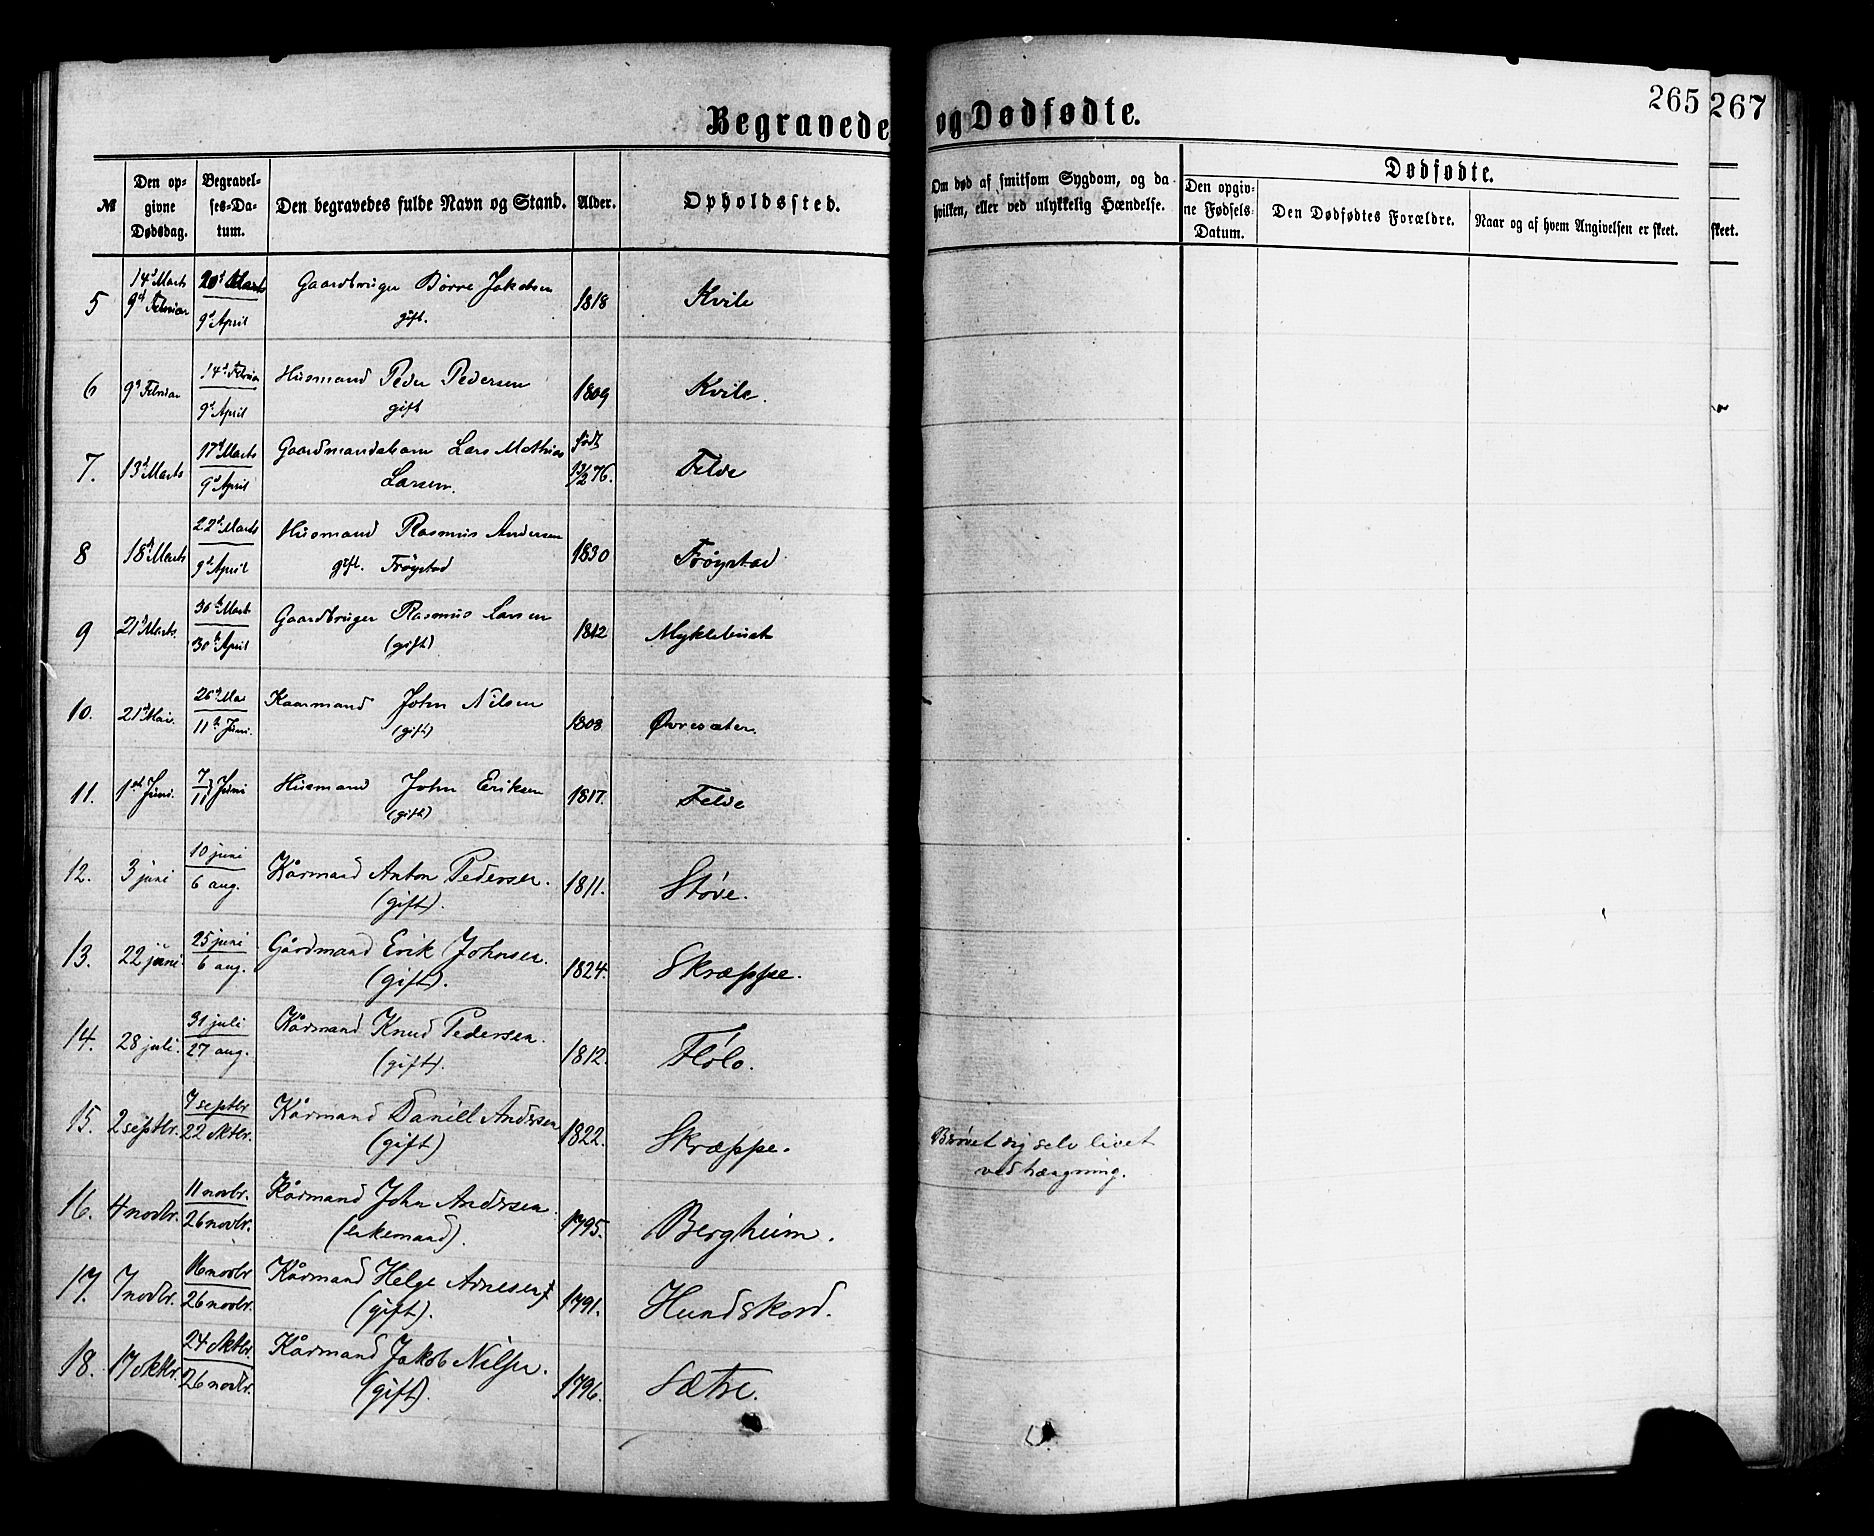 Begravede og Dødfødte.
265 267
№ | Den opgivne Dødsdag. | Begravelses-Datum. | Den begravedes fulde Navn og Stand. | Alder. | Opholdssted. | Om død af smitsom Sygdom, og da hvilken, eller ved ulykkelig Hændelse. | Dødfødte.
Den opgivne Fødsels-Datum. | Den Dødfødtes Forældre. | Naar og af hvem Angivelsen er skeet. | skeet.
5 | 14d Marts 9d Februar | 20d Marts 9d April | Gaardbruger Børre Jakobsen gift. | 1818 | Kvile
6 | 9d Februar | 14d Februar 9d April | Husmand Peder Pedersen gift | 1809 | Kvile.
7. | 13d Marts | 17d Marts 9d April | Gaardmandsbarn Lars Mathias Larsen. | født 13/2 76. | Felde
8 | 18d Marts | 22d Marts 9d April | Husmand Rasmus Andersen gift. Frøystad | 1830 | Frøystad
9 | 21d Marts. | 30th Marts 30th April | Gaardbruger Rasmus Larsen (gift) | 1812 | Myklebust
10. | 21d Mai. | 26d Mai 11th Juni. | Kaarmand John Nilsen (gift) | 1808 | Øvresæter.
11. | 1ste Juni. | 7/11 Juni | Husmand John Eriksen (gift) | 1817. | Felde
12. | 3 juni | 10 juni 6 aug. | Kårmand Anton Pedersen. (gift). | 1811. | Støve.
13. | 22 juni. | 25 juni 6 aug. | Gårdmand Erik Johnsen. (gift). | 1824. | Skræppe.
14. | 28 juli. | 31 juli 27 aug. | Kårmand Knud Pedersen. (gift). | 1812. | Flólo.
15. | 2 septbr. | 7 septbr 22 oktbr. | Kårmand Daniel Andersen (gift) | 1822. | Skræppe. | Berøvet sig selv livet ved hængning.
16. | 4 novbr. | 11 novbr. 26 novbr. | Kårmand John Andersen. (enkemand). | 1795. | Bergheim.
17. | 7 novbr. | 16 novbr 26 novbr. | Kårmand Helge Arnesen (gift). | 1791. | Hundskord.
18. | 17 oktbr. | 24 oktbr. 26 novbr. | Kårmand Jakob Nilsen. (gift). | 1796. | Sætre.